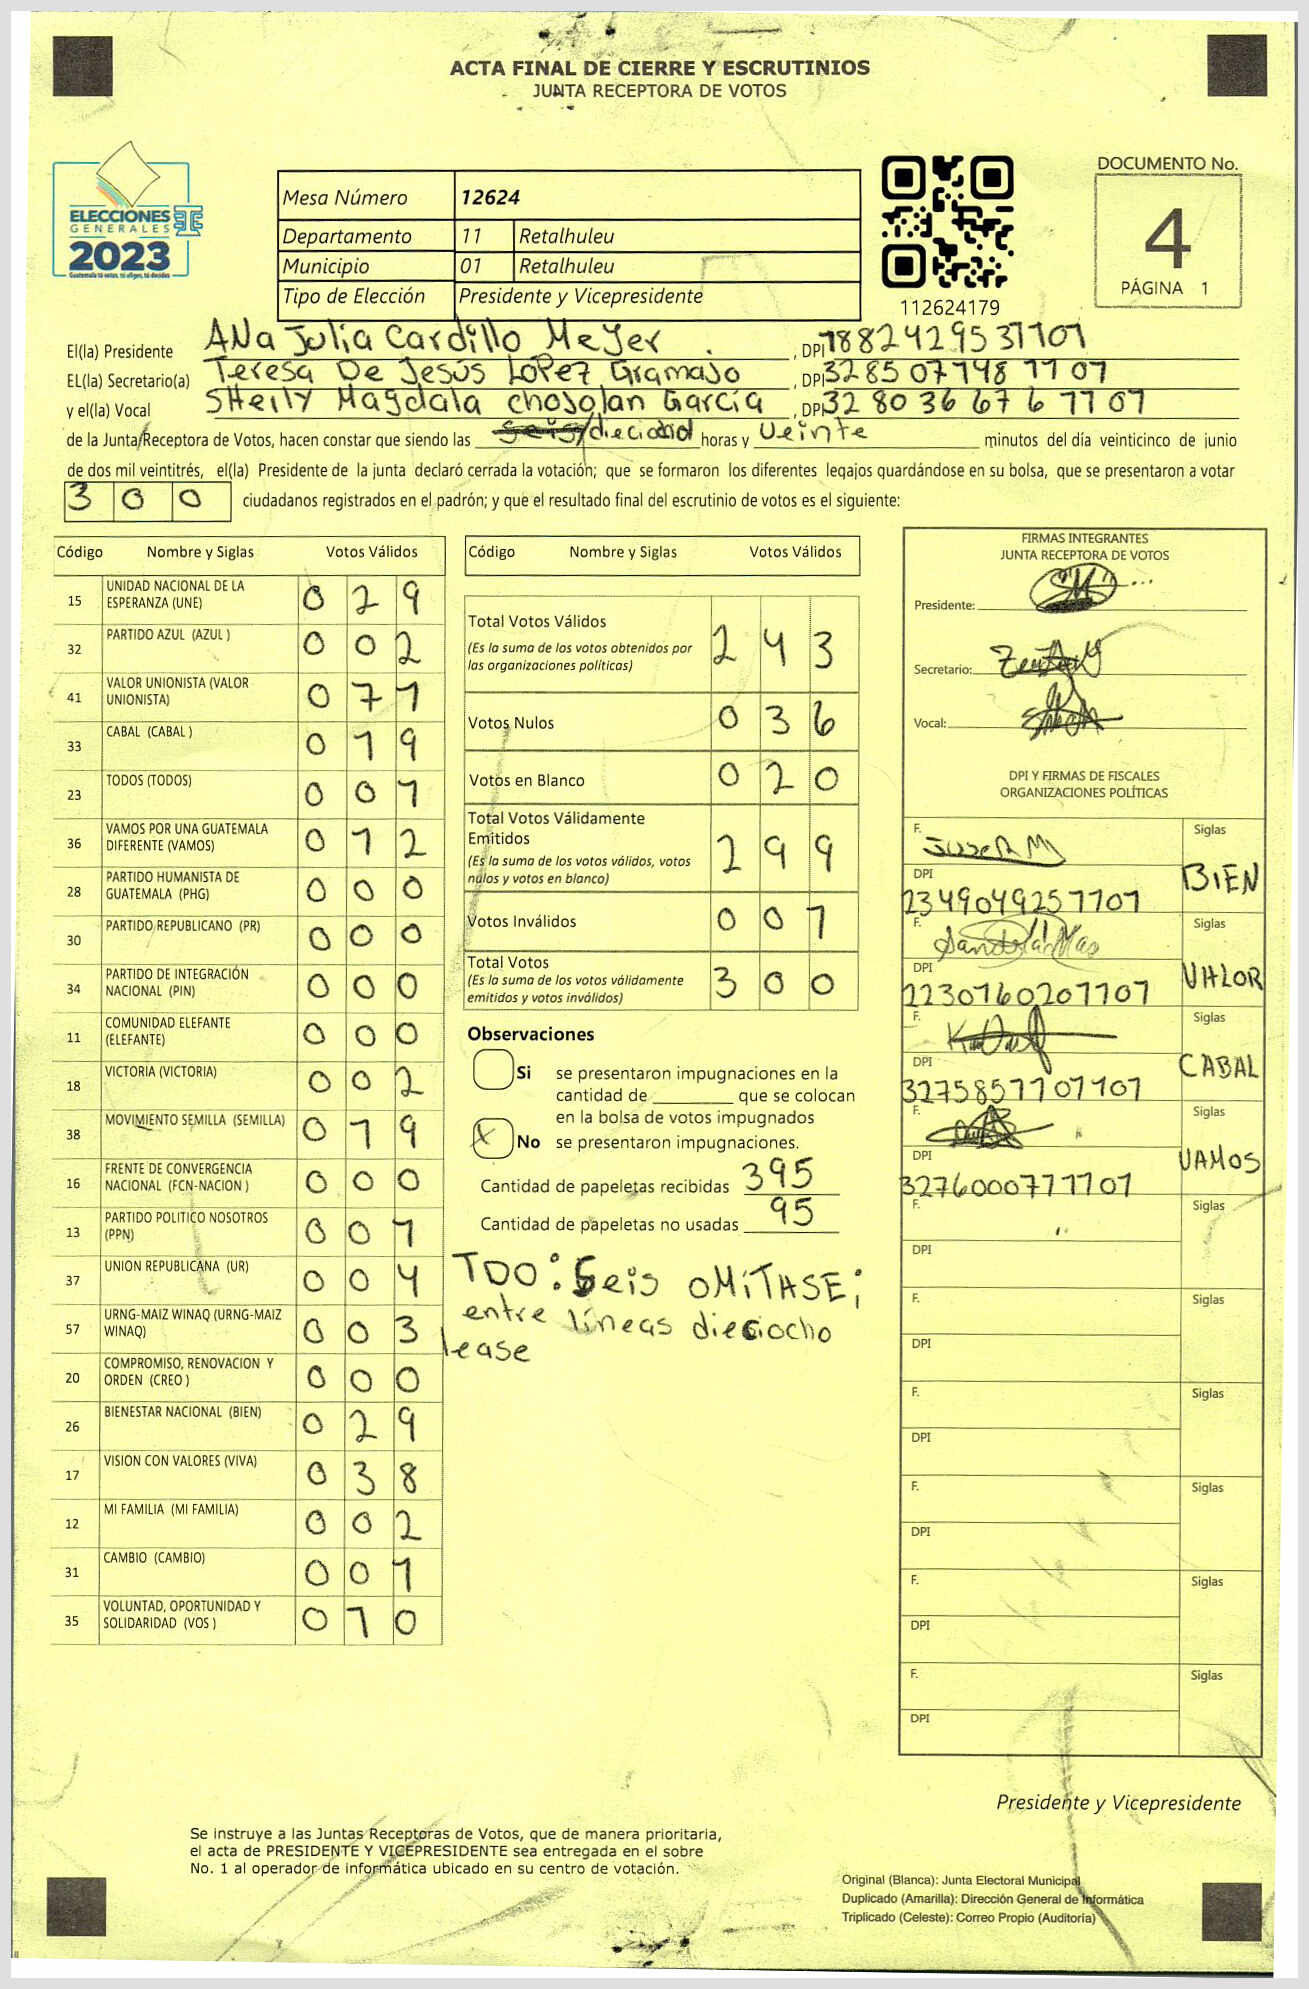 ACTA FINAL DE CIERRE Y ESCRUTINIOS
JUNTA RECEPTORA DE VOTOS
ELECCIONES
GENERALES
2023
Guatemala tú votas, tú eliges, tú decides
Mesa Número 12624
Departamento 11 Retalhuleu
Municipio 01 Retalhuleu
Tipo de Elección Presidente y Vicepresidente
112624179
DOCUMENTO No.
4
PÁGINA 1
El(la) Presidente ANa Julia Cardillo MeJer , DPI 1882429531101
EL(la) Secretario(a) Teresa De Jesús LoPez Gramajo , DPI 3285 07148 1101
y el(la) Vocal SHeily Magdala chojolan García , DPI 3280 36676 1101
de la Junta Receptora de Votos, hacen constar que siendo las seis/dieciocho horas y veinte minutos del día veinticinco de junio
de dos mil veintitrés, el(la) Presidente de la junta declaró cerrada la votación; que se formaron los diferentes legajos quardándose en su bolsa, que se presentaron a votar
3 0 0 ciudadanos registrados en el padrón; y que el resultado final del escrutinio de votos es el siguiente:
Código Nombre y Siglas Votos Válidos
15 UNIDAD NACIONAL DE LA ESPERANZA (UNE) 0 2 9
32 PARTIDO AZUL (AZUL ) 0 0 2
41 VALOR UNIONISTA (VALOR UNIONISTA) 0 7 1
33 CABAL (CABAL ) 0 1 9
23 TODOS (TODOS) 0 0 1
36 VAMOS POR UNA GUATEMALA DIFERENTE (VAMOS) 0 1 2
28 PARTIDO HUMANISTA DE GUATEMALA (PHG) 0 0 0
30 PARTIDO REPUBLICANO (PR) 0 0 0
34 PARTIDO DE INTEGRACIÓN NACIONAL (PIN) 0 0 0
11 COMUNIDAD ELEFANTE (ELEFANTE) 0 0 0
18 VICTORIA (VICTORIA) 0 0 2
38 MOVIMIENTO SEMILLA (SEMILLA) 0 1 9
16 FRENTE DE CONVERGENCIA NACIONAL (FCN-NACION ) 0 0 0
13 PARTIDO POLITICO NOSOTROS (PPN) 0 0 1
37 UNION REPUBLICANA (UR) 0 0 4
57 URNG-MAIZ WINAQ (URNG-MAIZ WINAQ) 0 0 3
20 COMPROMISO, RENOVACION Y ORDEN (CREO ) 0 0 0
26 BIENESTAR NACIONAL (BIEN) 0 2 9
17 VISION CON VALORES (VIVA) 0 3 8
12 MI FAMILIA (MI FAMILIA) 0 0 2
31 CAMBIO (CAMBIO) 0 0 1
35 VOLUNTAD, OPORTUNIDAD Y SOLIDARIDAD (VOS ) 0 1 0
Código Nombre y Siglas Votos Válidos
Total Votos Válidos 2 4 3
(Es la suma de los votos obtenidos por
las organizaciones políticas)
Votos Nulos 0 3 6
Votos en Blanco 0 2 0
Total Votos Válidamente
Emitidos 2 9 9
(Es la suma de los votos válidos, votos
nulos y votos en blanco)
Votos Inválidos 0 0 1
Total Votos 3 0 0
(Es la suma de los votos válidamente
emitidos y votos inválidos)
Observaciones
Si se presentaron impugnaciones en la
cantidad de ________ que se colocan
en la bolsa de votos impugnados
X No se presentaron impugnaciones.
Cantidad de papeletas recibidas 395
Cantidad de papeletas no usadas 95
TDO: Seis OMíTASE;
entre líneas dieciocho
lease
FIRMAS INTEGRANTES
JUNTA RECEPTORA DE VOTOS
Presidente:
Secretario:
Vocal:
DPI Y FIRMAS DE FISCALES
ORGANIZACIONES POLÍTICAS
F. Siglas
DPI BIEN
2349049251101
F. Siglas
DPI VALOR
2230160201101
F. Siglas
DPI CABAL
3275851101101
F. Siglas
DPI VAMOS
3276000111101
F. Siglas
DPI
F. Siglas
DPI
F. Siglas
DPI
F. Siglas
DPI
F. Siglas
DPI
F. Siglas
DPI
Presidente y Vicepresidente
Se instruye a las Juntas Receptoras de Votos, que de manera prioritaria,
el acta de PRESIDENTE Y VICEPRESIDENTE sea entregada en el sobre
No. 1 al operador de informática ubicado en su centro de votación.
Original (Blanca): Junta Electoral Municipal
Duplicado (Amarilla): Dirección General de Informática
Triplicado (Celeste): Correo Propio (Auditoria)